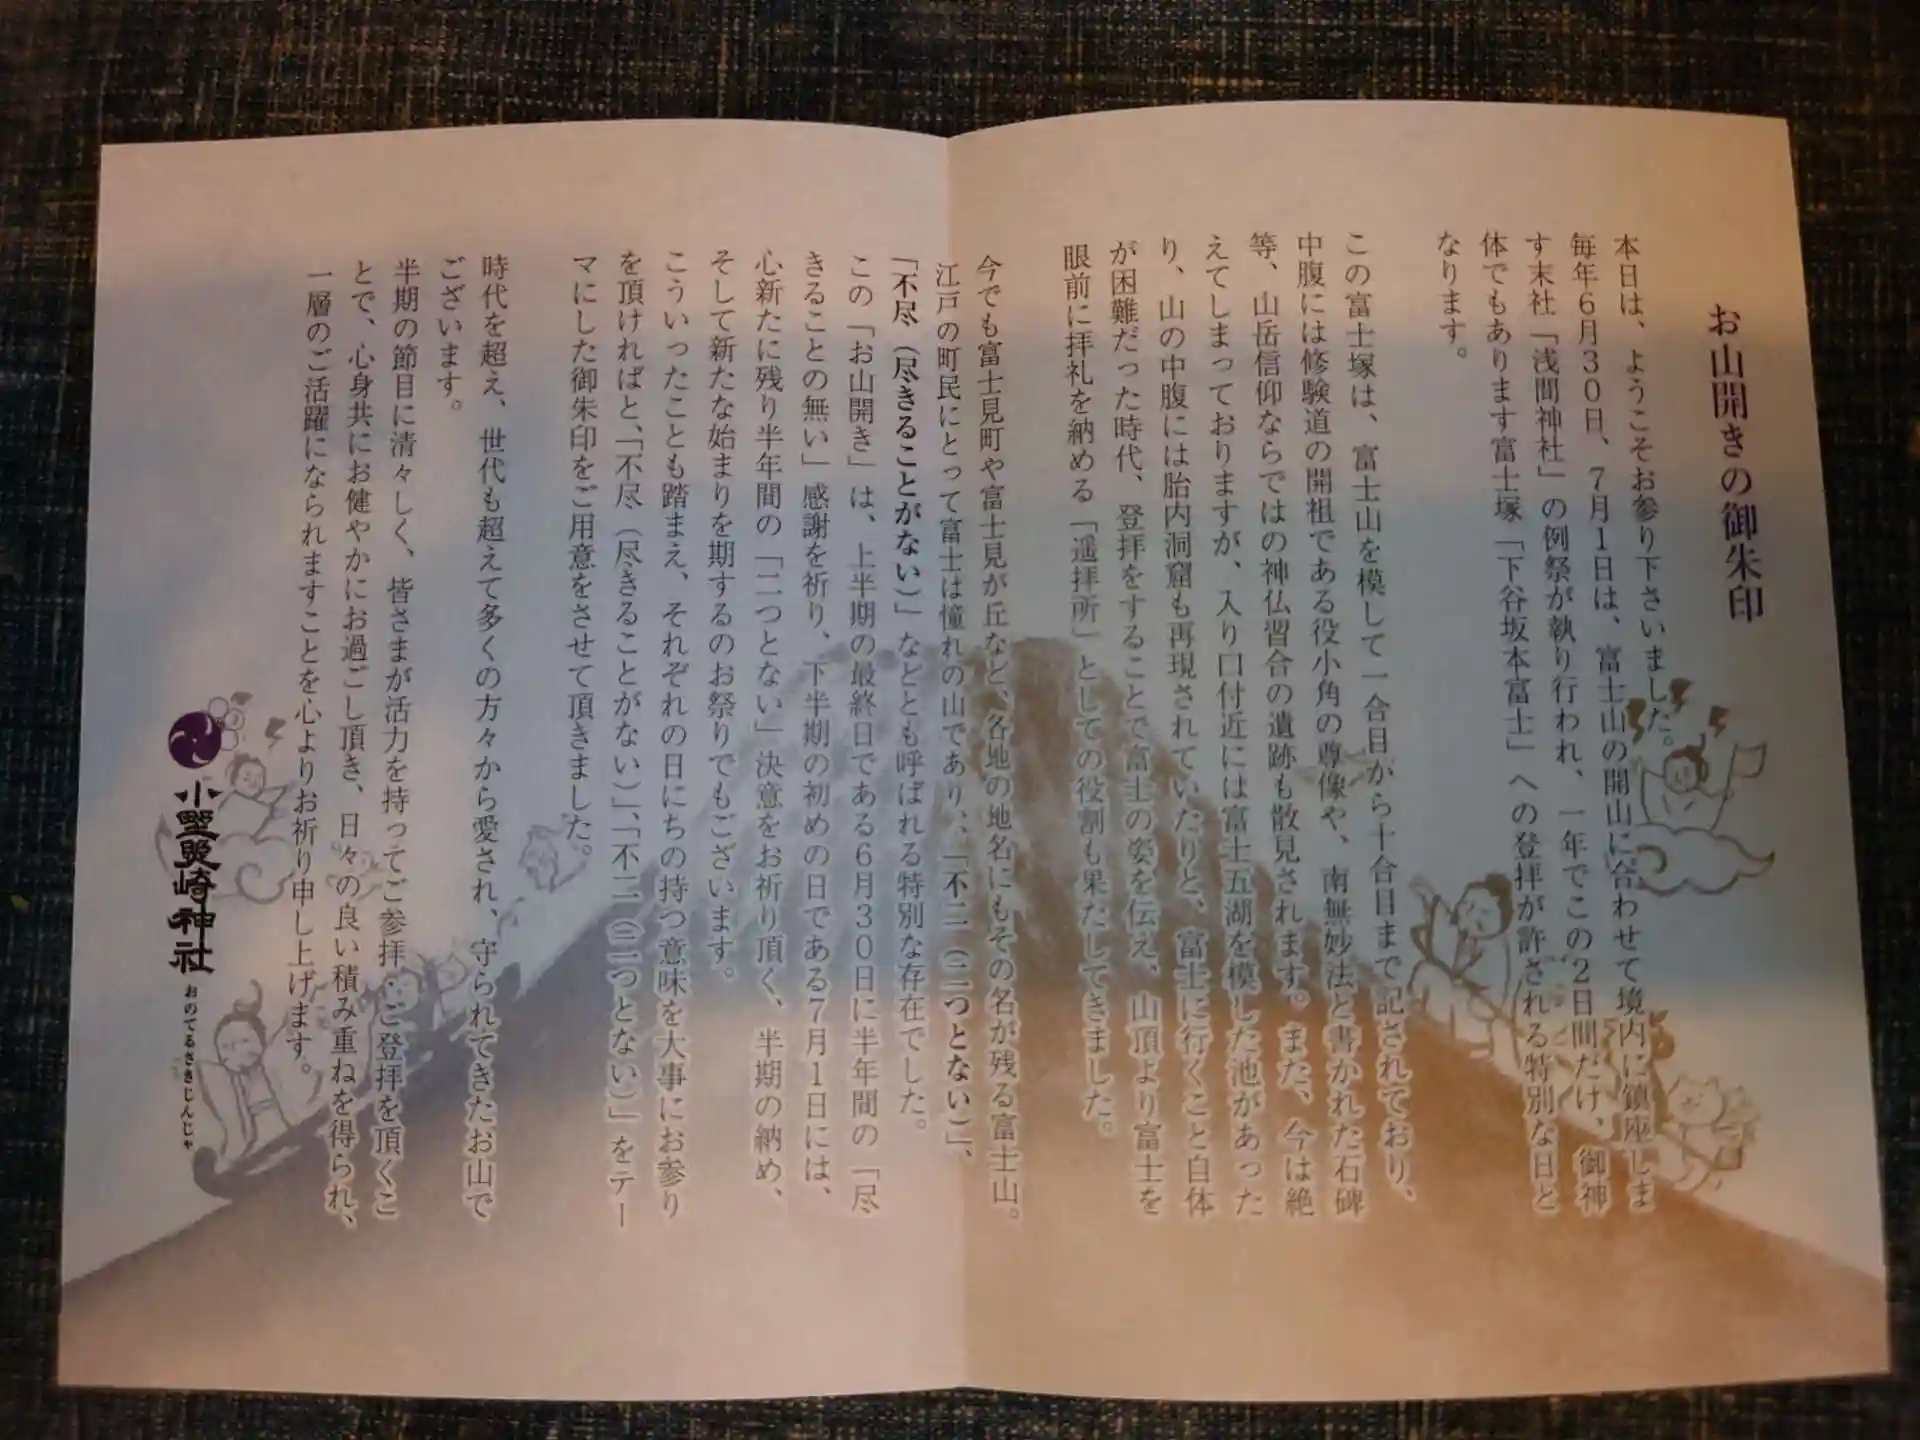 お山開きの御朱印
本日は、ようこそお参り下さいました。
毎年6月30日、7月1日は、富士山の開山に合わせて境内に鎮座しま
す末社「浅間神社」の例祭が執り行われ、一年でこの2日間だけ、御神
体でもあります富士塚「下谷坂本富士」への登拝が許される特別な日と
なります。
この富士塚は、富士山を模して一合目から十合目まで記されており、
中腹には修験道の開祖である役小角の尊像や、南無妙法と書かれた石碑
等、山岳信仰ならではの神仏習合の遺跡も散見されます。また、今は絶
えてしまっておりますが、入り口付近には富士五湖を模した池があった
り、山の中腹には胎内洞窟も再現されていたりと、富士に行くこと自体
が困難だった時代、登拝をすることで富士の姿を伝え、山頂より富士を
眼前に拝礼を納める「遥拝所」としての役割も果たしてきました。
今でも富士見町や富士見が丘など、各地の地名にもその名が残る富士山。
江戸の町民にとって富士は憧れの山であり、「不二（二つとない）」、
「不尽（尽きることがない）」などとも呼ばれる特別な存在でした。
この「お山開き」は、上半期の最終日である6月30日に半年間の「尽
きることの無い」感謝を祈り、下半期の初めの日である7月1日には、
心新たに残り半年間の「二つとない」決意をお祈り頂く、半期の納め、
そして新たな始まりを期するのお祭りでもございます。
こういったことも踏まえ、それぞれの日にちの持つ意味を大事にお参り
を頂ければと、「不尽（尽きることがない）」、「不二（二つとない）」をテー
マにした御朱印をご用意をさせて頂きました。
時代を超え、世代も超えて多くの方々から愛され、守られてきたお山で
ございます。
半期の節目に清々しく、皆さまが活力を持ってご参拝・ご登拝を頂くこ
とで、心身共にお健やかにお過ごし頂き、日々の良い積み重ねを得られ、
一層のご活躍になられますことを心よりお祈り申し上げます。
小野照崎神社
おのてるさきじんじゃ